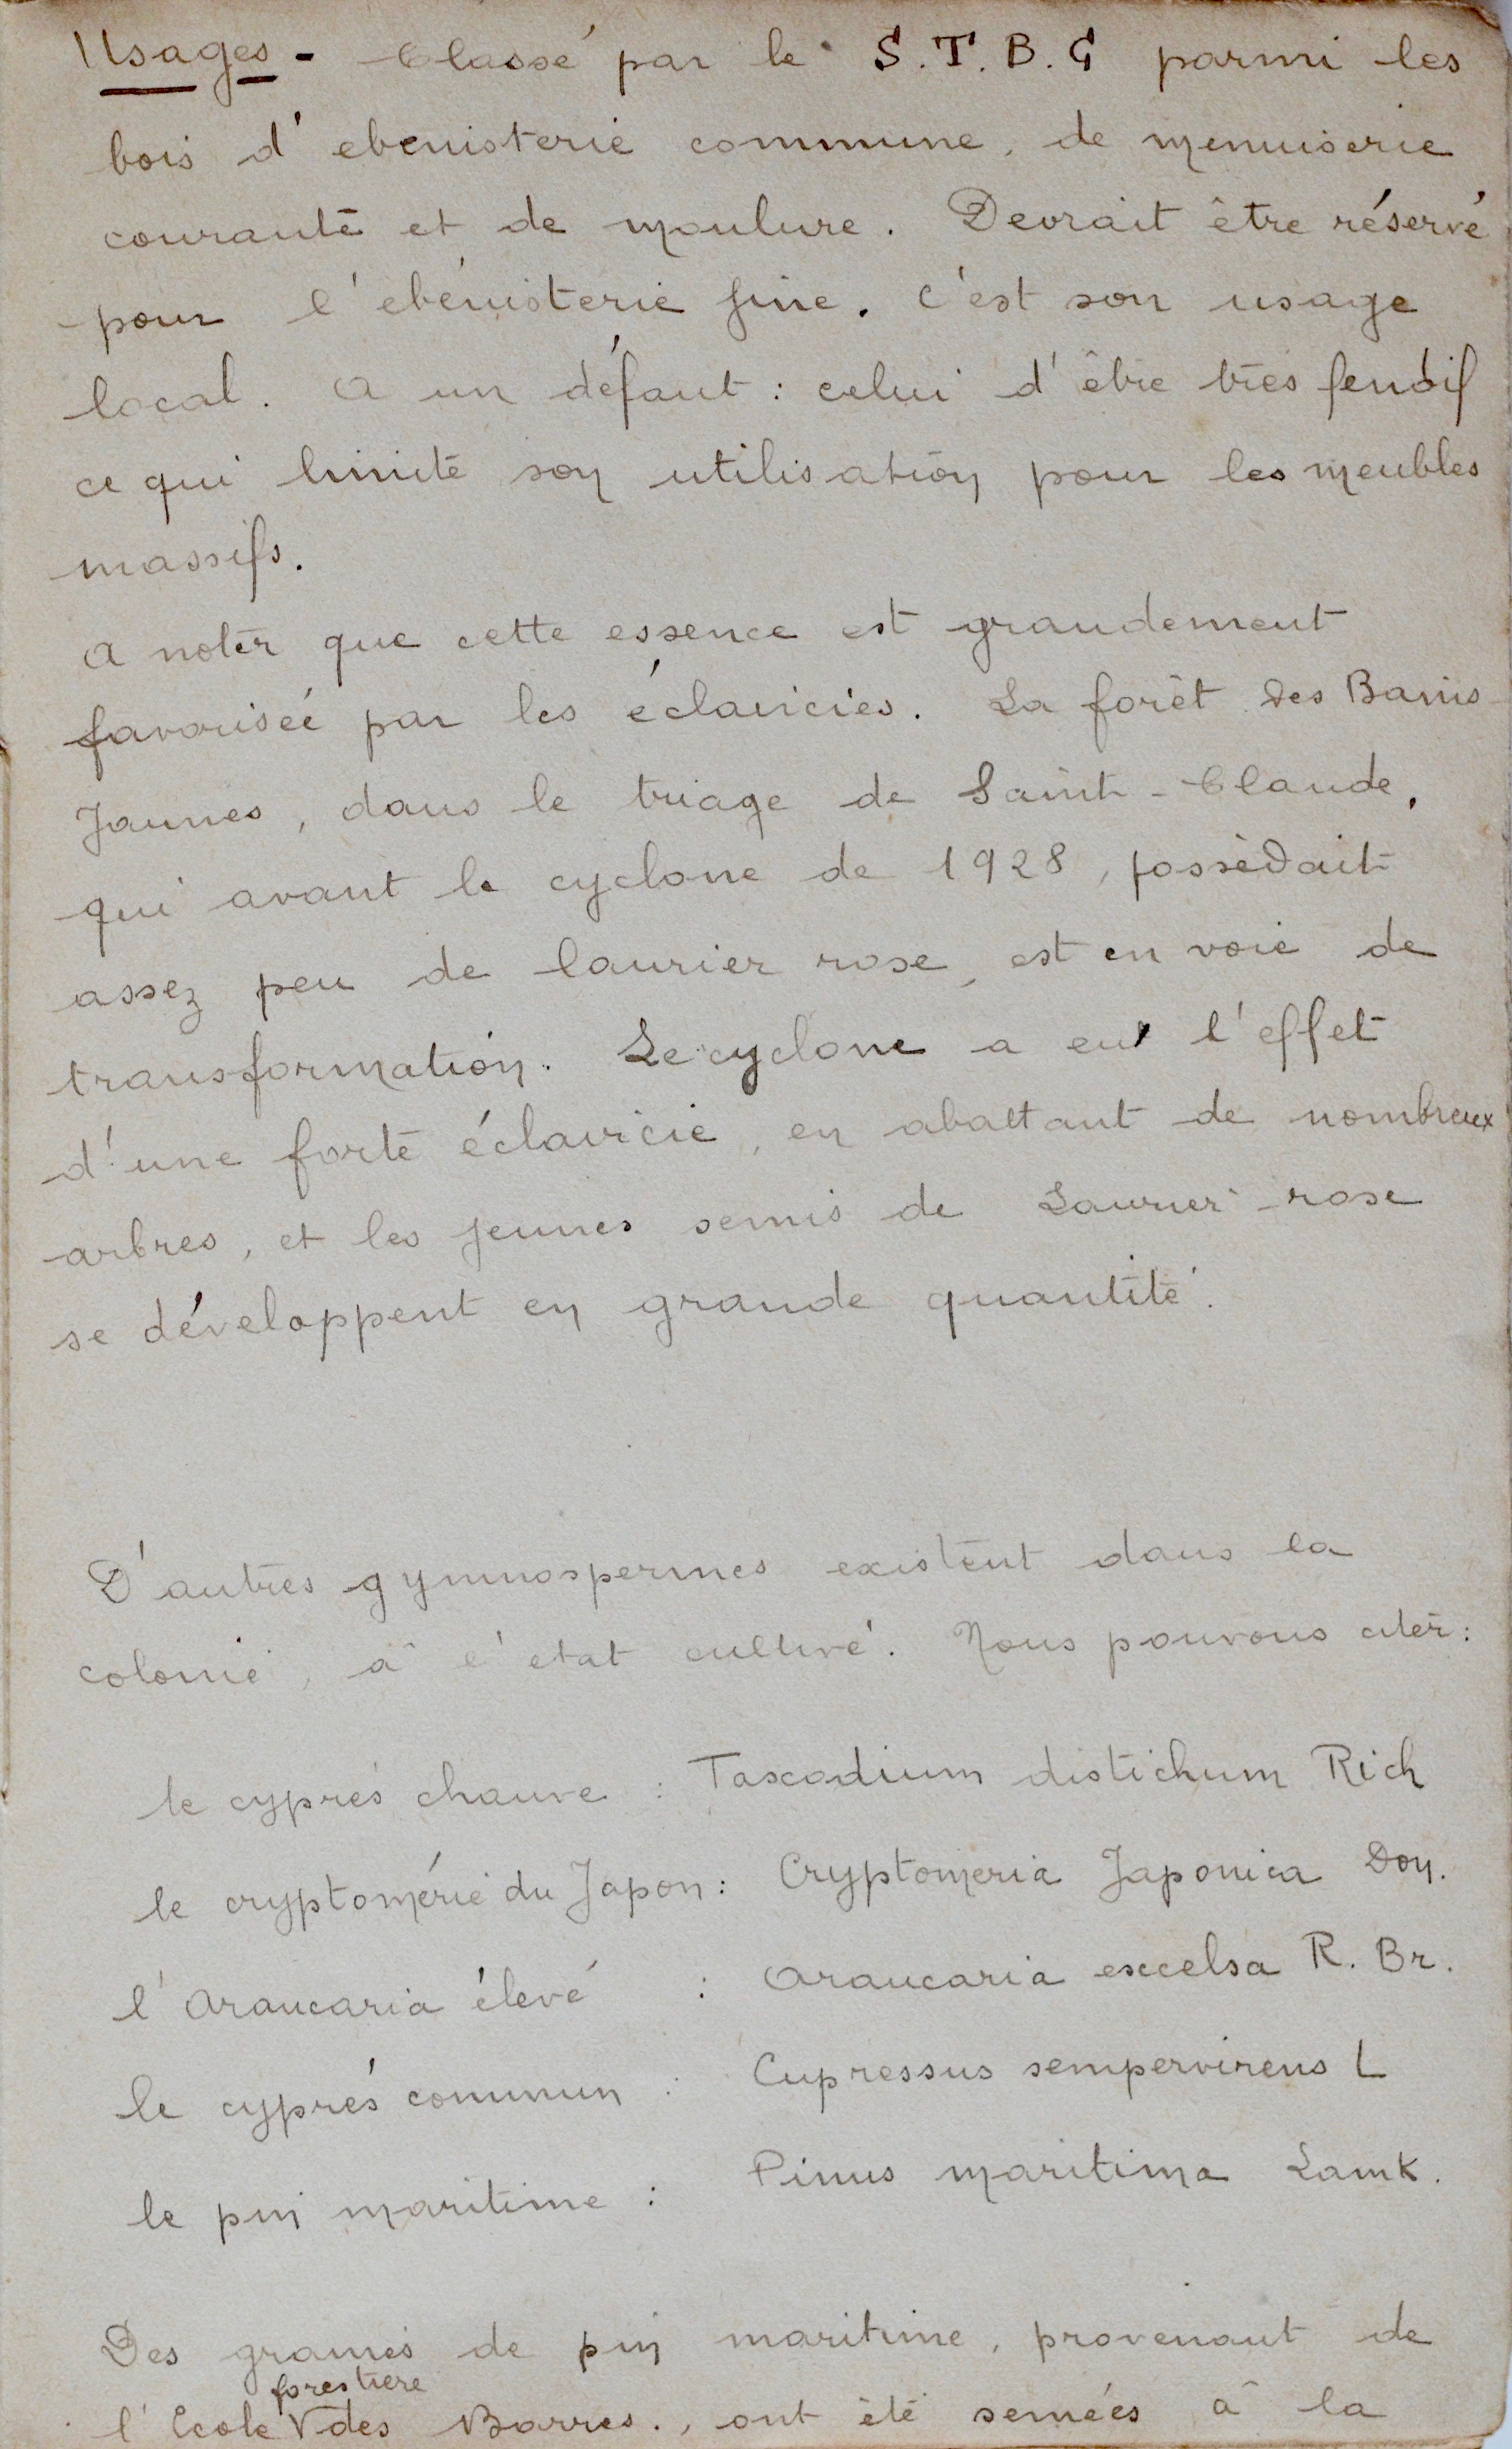 Usages - Classé par le S.T.B.G parmi les
bois d'ebenisterie commune, de menuiserie
courante et de moulure. Devrait être réservé
pour l'ebénisterie fine. C'est son usage
local. A un défaut : celui d'être très fendif
ce qui limite son utilisation pour les meubles
massifs.
A noter que cette essence est grandement
favorisée par les éclaircies. La forêt des Bains-
Jaunes, dans le triage de Saint-Claude,
qui avant le cyclone de 1928, possèdait
assez peu de laurier rose, est en voie de
transformation. Le cyclone a eu l'effet
d'une forte éclaircie, en abattant de nombreux
arbres, et les jeunes semis de Laurier-rose
se développent en grande quantité.
D'autres gymnospermes existent dans la
colonie, à l'etat cultivé. Nous pouvons citer :
le cyprès chauve : Taxodium distichum Rich
le cryptomérie du Japon : Cryptomeria Japonica Don.
l'Araucaria élevé : Araucaria excelsa R. Br.
le cyprès commun : Cupressus sempervirens L
le pin maritime : Pinus maritima Lamk.
Des graines de pin maritime, provenant de
forestière
l'Ecole V des Barres., ont été semées à la